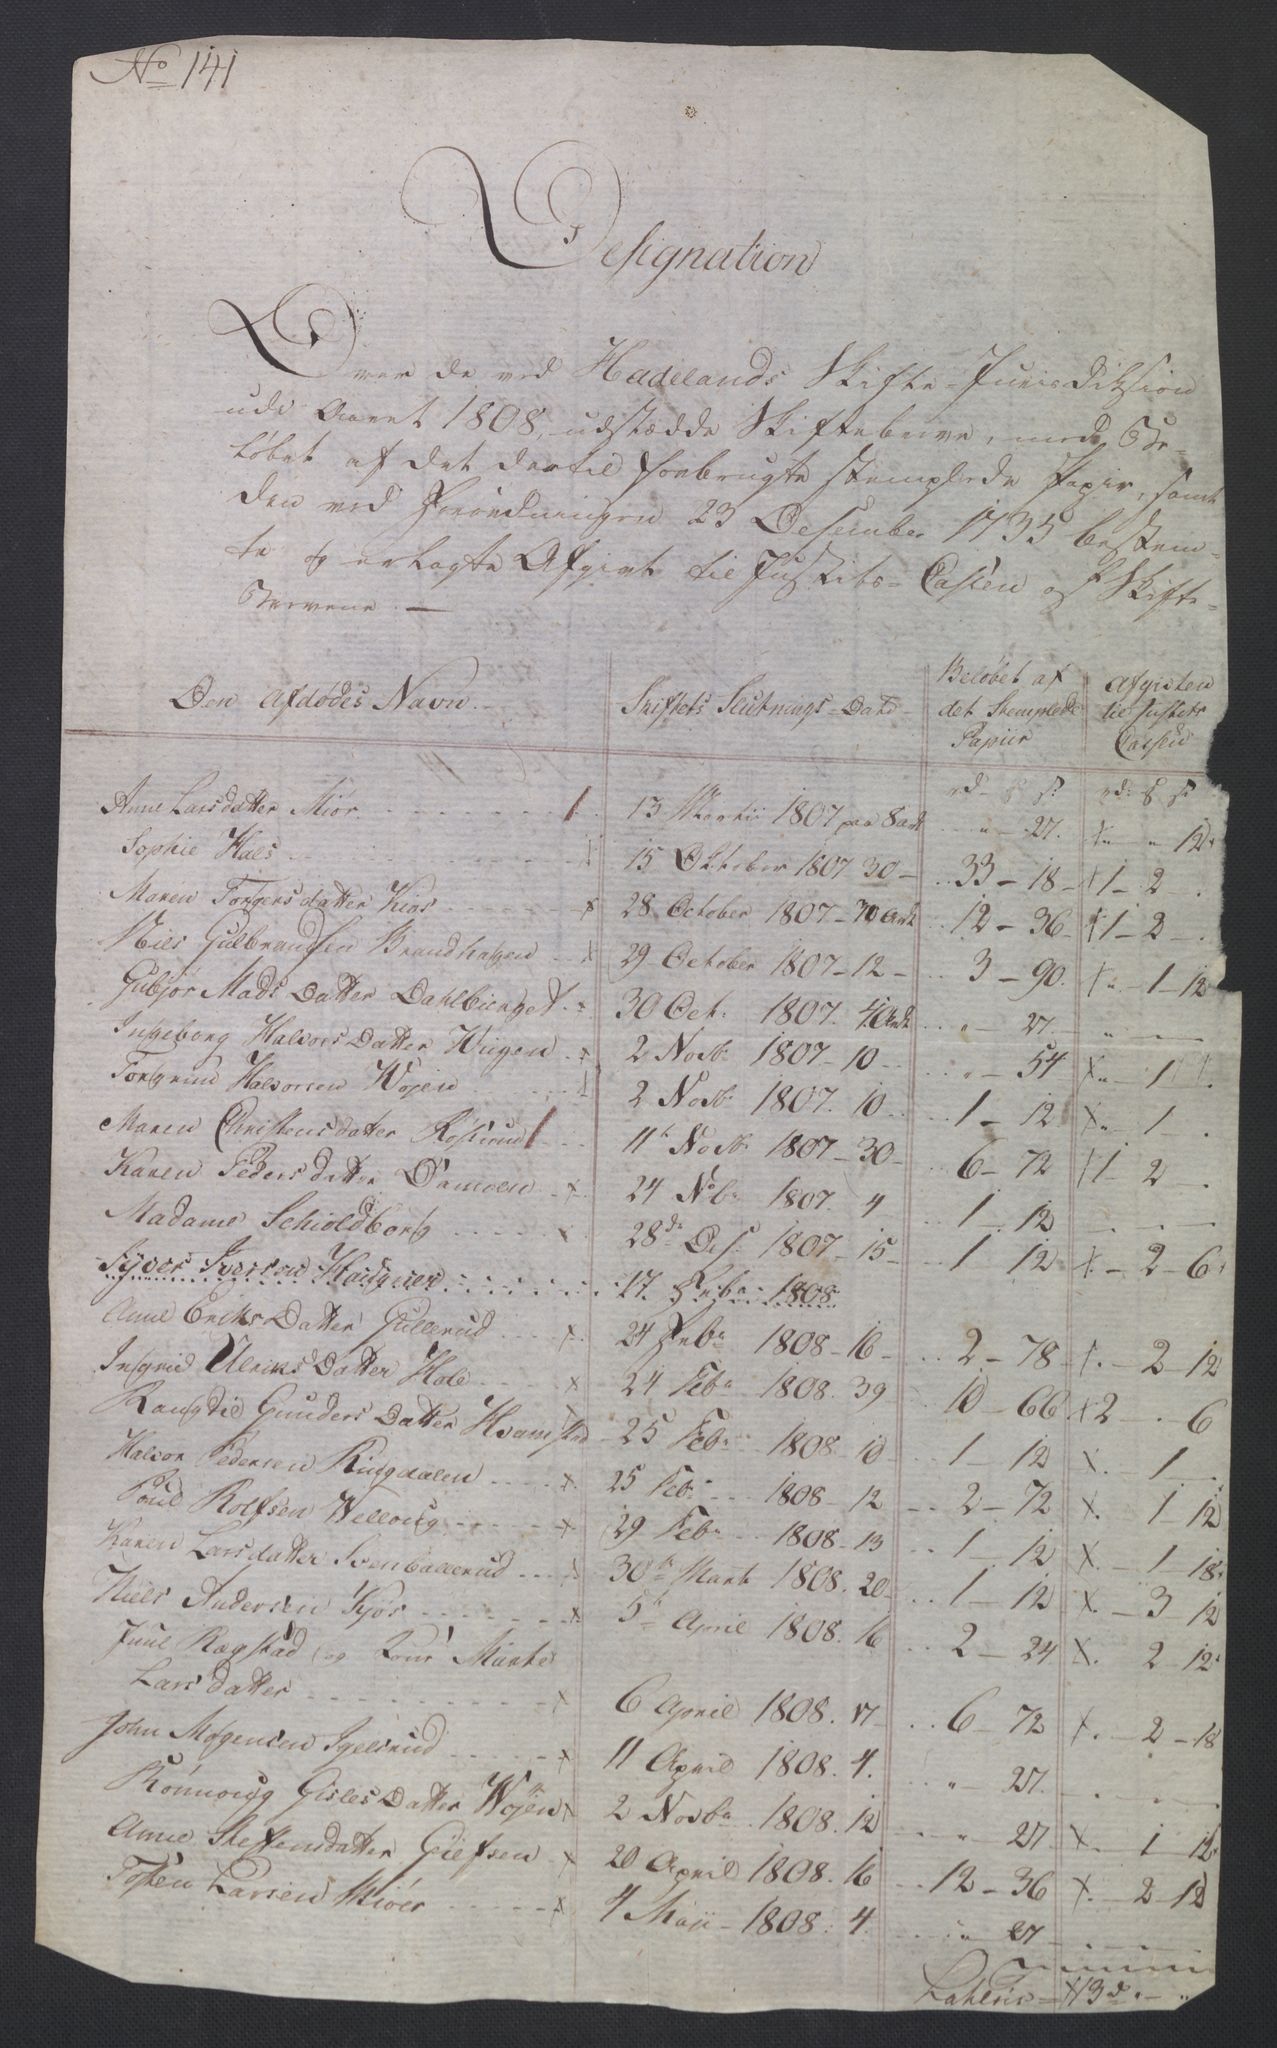 No 141
Designation
Over de ved Hadelands Skifte-Jurisdiktsion
udi Aaret 1808, udstædde Skiftebreve, med Be-
løbet af det dertil forbrugte stemplede Papir, samt
den ved Forordningen 23 Desember 1735 bestem-
te og erlagte Afgivt til Justits-Cassen af Skifte-
Brevene. —
Den Afdødes Navn. Skiftets Slutnings-Dato Beløbet af det Stemplede Papiir Afgivten til Justits Cassen
rd. ₻ s. rd. ₻ s.
Anne Larsdatter Miør 13 Martii 1807 paa 8 ark " 27. x " " 12
Sophie Hals 15 Oktober 1807 30 — 33 — 18 — x 1 — 2 —
Maren Torgersdatter Kiøs x 28 October 1807 — 30 Ark 12 — 36 1 — 2 —
Niels Gulbrandsen Brandhagen x 29 October 1807 — 12 — 3 — 90. x " — 1 — 12
Gubjør Mads Datter Dahlbienget 30 Oct: 1807. 4 Ark " — 27. "
Ingeborg Halvors Datter Wiigen x 2 Novb: 1807 — 10 " — 54 x " — 1
Torgrim Halvorsen Wøjen 2 Novb: 1807. 10 1 — 12 x " 1 —
Maren Christensdatter Røkerud 11t Novb: 1807 — 30 — 6 — 72 1 — 2 —
Karen Peders datter Damoen x 24 Nob: 1807. 4 1 — 12
Madame Schioldborg x 28de Des. 1807 — 15 — 1 12 x — 2 — 6
Syver Iversen Haugner 17. Feb: 1808
Anne Eriks Datter Gullerud x 24 Feb: 1808 — 16 — 2 — 78 x. — 2 — 12
Ingrid Ulriks Datter Hole x 24 Feb: 1808. 39 — 10 — 66 x 2 . 6
Rangdie Gunders Datter Hvamstad 25 Feb: 1808 10 — 1 — 12 x. 1
Halvor Pedersen Ringdalen x 25 Feb: 1808 — 12 2 — 72 x. 1 — 12
Poul Rolfsen Welloug x 29 Feb: 1808 — 13 1 — 12 x. — 1 — 18
Karen Larsdatter Svenballerud x 30te Marts 1808. 20 — 1 — 12 x. — 3 — 12
Niels Andersen Kjøs x 5t April 1808. 16 2 — 24 x. 2 — 12
Juul Rogstad og Kone Marthe
Lars datter x 6 April 1808. 17 — 6 — 72 x. — 2 — 18
John Mogensen Igelsrud x 11 April 1808. 4. " — 27.
Rønnoug Gisles Datter Wøjen x 2 Novb: 1808. 12 " 27 x. 1 12
Anne Steffensdatter Giefsen x 20 April 1808. 16 12 — 36 x. — 2 — 12
Tosten Larsen Skiøer x 4 Maji — 1808. 4 " 27
Lateris — x 13 d. — "